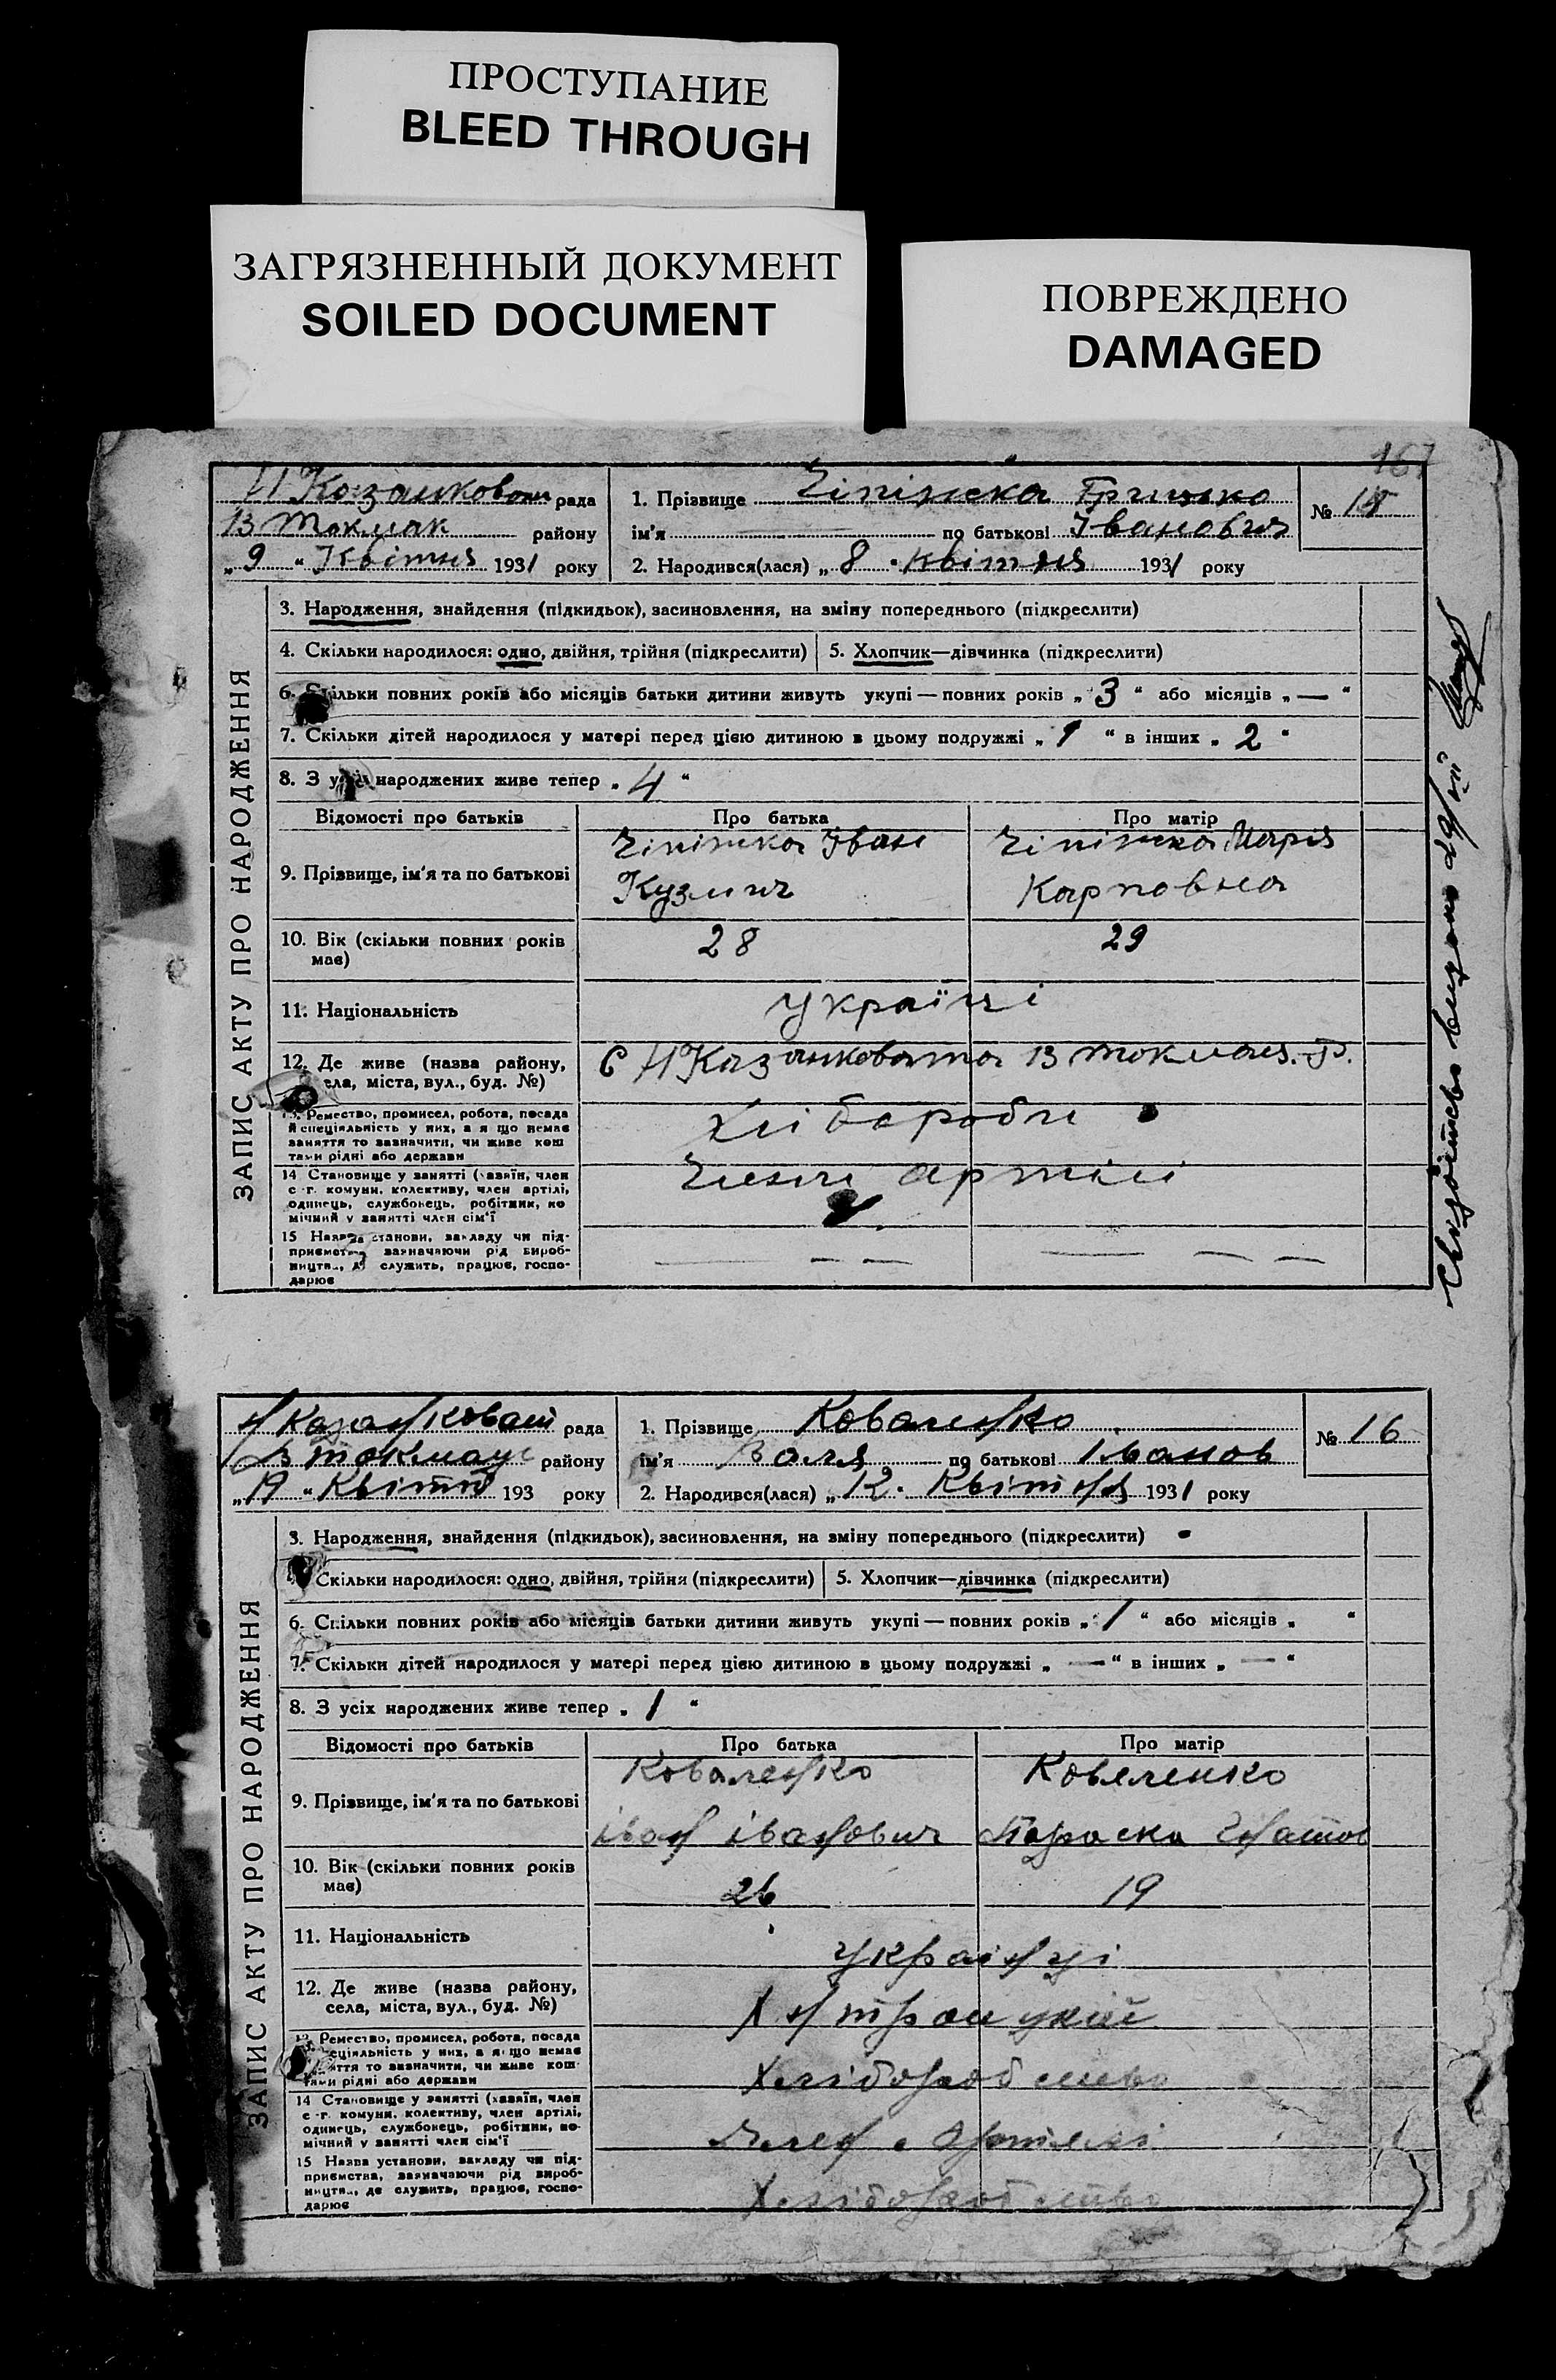 ПРОСТУПАНИЕ
BLEED THROUGH
ЗАГРЯЗНЕННЫЙ ДОКУМЕНТ
SOILED DOCUMENT
ПОВРЕЖДЕНО
DAMAGED
167
рада
В Токмак району
„9“ Квітня 1931 року
1. Прізвище Чіпіжка Грицько
ім'я — по батькові Іванович
2. Народився(лася) „8 Квітня 1931 року
№
ЗАПИС АКТУ ПРО НАРОДЖЕННЯ
3. Народження, знайдення (підкидьок), засиновлення, на зміну попереднього (підкреслити)
4. Скільки народилося: одно, двійня, трійня (підкреслити)
5. Хлопчик—дівчинка (підкреслити)
6. Скільки повних років або місяців батьки дитини живуть укупі — повних років „3“ або місяців „—“
7. Скільки дітей народилося у матері перед цією дитиною в цьому подружжі „1“ в інших „2“
8. З усіх народжених живе тепер „4“
Відомості про батьків
Про батька
Про матір
9. Прізвище, ім'я та по батькові
Чіпіжка Іван
Кузмич
Чіпіжка Марія
Карповна
10. Вік (скільки повних років
має)
28
29
11. Національність
Українці
12. Де живе (назва району,
села, міста, вул., буд. №)
С Н Казанковата В Токмац. Р.
13. Ремество, промисел, робота, посада
й спеціяльність у них, а якщо немає
заняття то зазначити, чи живе кош
тами рідні або держави
Хлібороби
14 Становище у занятті (хазяїн, член
с.-г. комуни, колективу, член артілі,
одинець, службовець, робітник, по
мічний у занятті член сім'ї
Члени артілі
15 Назва установи, закладу чи під-
приємства, зазначаючи рід вироб-
ництва, де служить, працює, госпо-
дарює
— — — — — —
Свидоітсво видано 29/VII
рада
В Токмац району
„ “ Квітня 193 року
1. Прізвище Коваленко
ім'я Валя по батькові Іванов
2. Народився(лася) „12. Квітня 1931 року
№ 16
ЗАПИС АКТУ ПРО НАРОДЖЕННЯ
3. Народження, знайдення (підкидьок), засиновлення, на зміну попереднього (підкреслити)
Скільки народилося: одно, двійня, трійня (підкреслити)
5. Хлопчик—дівчинка (підкреслити)
6. Скільки повних років або місяців батьки дитини живуть укупі — повних років „1“ або місяців „ “
7. Скільки дітей народилося у матері перед цією дитиною в цьому подружжі „—“ в інших „—“
8. З усіх народжених живе тепер „1“
Відомості про батьків
Про батька
Про матір
9. Прізвище, ім'я та по батькові
Коваленко
Іван Іванович
Коваленко
Параска Гнатов
10. Вік (скільки повних років
має)
26
19
11. Національність
Українці
12. Де живе (назва району,
села, міста, вул., буд. №)
13. Ремество, промисел, робота, посада
спеціяльність у них, а якщо немає
заняття то зазначити, чи живе кош-
тами рідні або держави
Хліборобство
14 Становище у занятті (хазяїн, член
с.-г. комуни, колективу, член артілі,
одинець, службовець, робітник, по-
мічний у занятті член сім'ї
Член Артелі
15 Назва установи, закладу чи під-
приємства, зазначаючи рід вироб-
ництва, де служить, працює, госпо-
дарює
Хліборобство